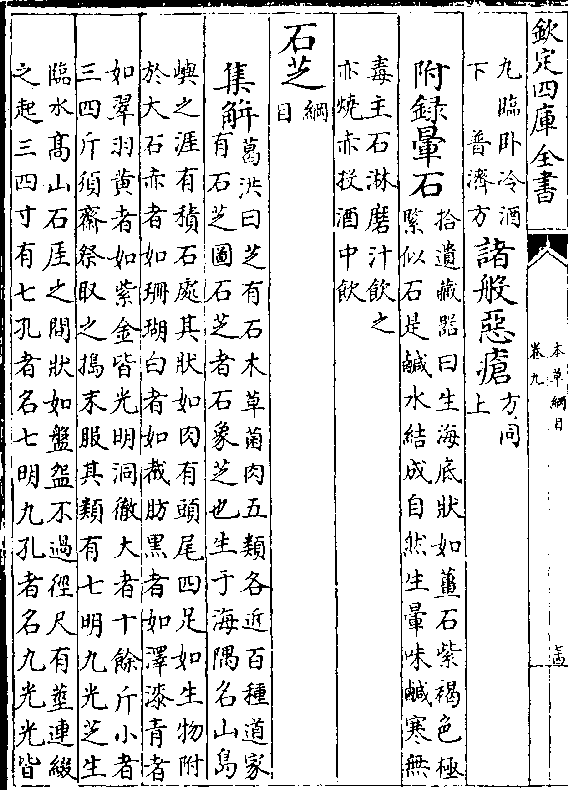 欽定四庫全書
本草綱目
卷九
九臨卧冷酒
下 普濟方
諸般惡瘡
方同
上
附録暈石
拾遺藏器曰生海底狀如薑石紫褐色極
緊似石是鹹水結成自然生暈味鹹寒無
毒主石淋磨汁飲之
亦燒赤投酒中飲
石芝
綱
目
集解
葛洪曰芝有石木草菌肉五類各近百種道家
有石芝圖石芝者石象芝也生于海隅名山島
嶼之涯有積石處其狀如肉有頭尾四足如生物附
於大石赤者如珊瑚白者如截肪黑者如澤漆青者
如翠羽黄者如紫金皆光明洞徹大者十餘斤小者
三四斤須齋祭取之搗末服其類有七明九光芝生
臨水髙山石厓之間狀如盤盌不過徑尺有莖連綴
之起三四寸有七孔者名七明九孔者名九光光皆